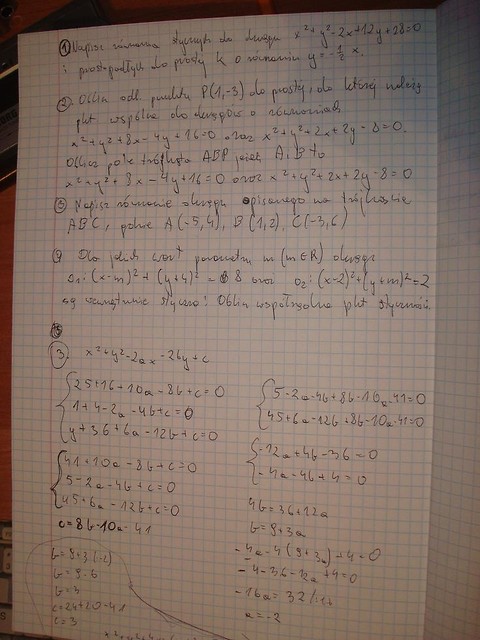 ① Napisz równania stycznych do okręgu x²+y²-2x+12y+28=0
i prostopadłych do prostej k o równaniu y=-½x.
② Oblicz odl. punktu P(1,-3) do prostej, do której należą
pkt wspólne do okręgów o równaniach
x²+y²+8x-4y+16=0 oraz x²+y²+2x+2y-8=0.
Oblicz pole trójkąta ABP jeżeli A i B to
x²+y²+8x-4y+16=0 oraz x²+y²+2x+2y-8=0
③ Napisz równanie okręgu opisanego na trójkącie
ABC, gdzie A(-5,4), B(1,2), C(-3,6)
④ Dla jakich wart parametru m (m∈R) okręgi
o₁: (x-m)²+(y+4)²=8 oraz o₂: (x-2)²+(y+m)²=2
są zewnętrznie styczne? Oblicz współrzędne pkt styczności.
③ x²+y²-2ax-2by+c
25+16+10a-8b+c=0
1+4-2a-4b+c=0
y+36+6a-12b+c=0
41+10a-8b+c=0
5-2a-4b+c=0
45+6a-12b+c=0
c=8b-10a-41
b=9+3(-2)
b=9-6
b=3
c=24+20-41
c=3
5-2a-4b+8b-10a-41=0
45+6a-12b+8b-10a-41=0
-12a+4b-36=0
-4a-4b+4=0
4b=36+12a
b=9+3a
-4a-4(9+3a)+4=0
-4-36-12a+4=0
-16a=32
a=-2